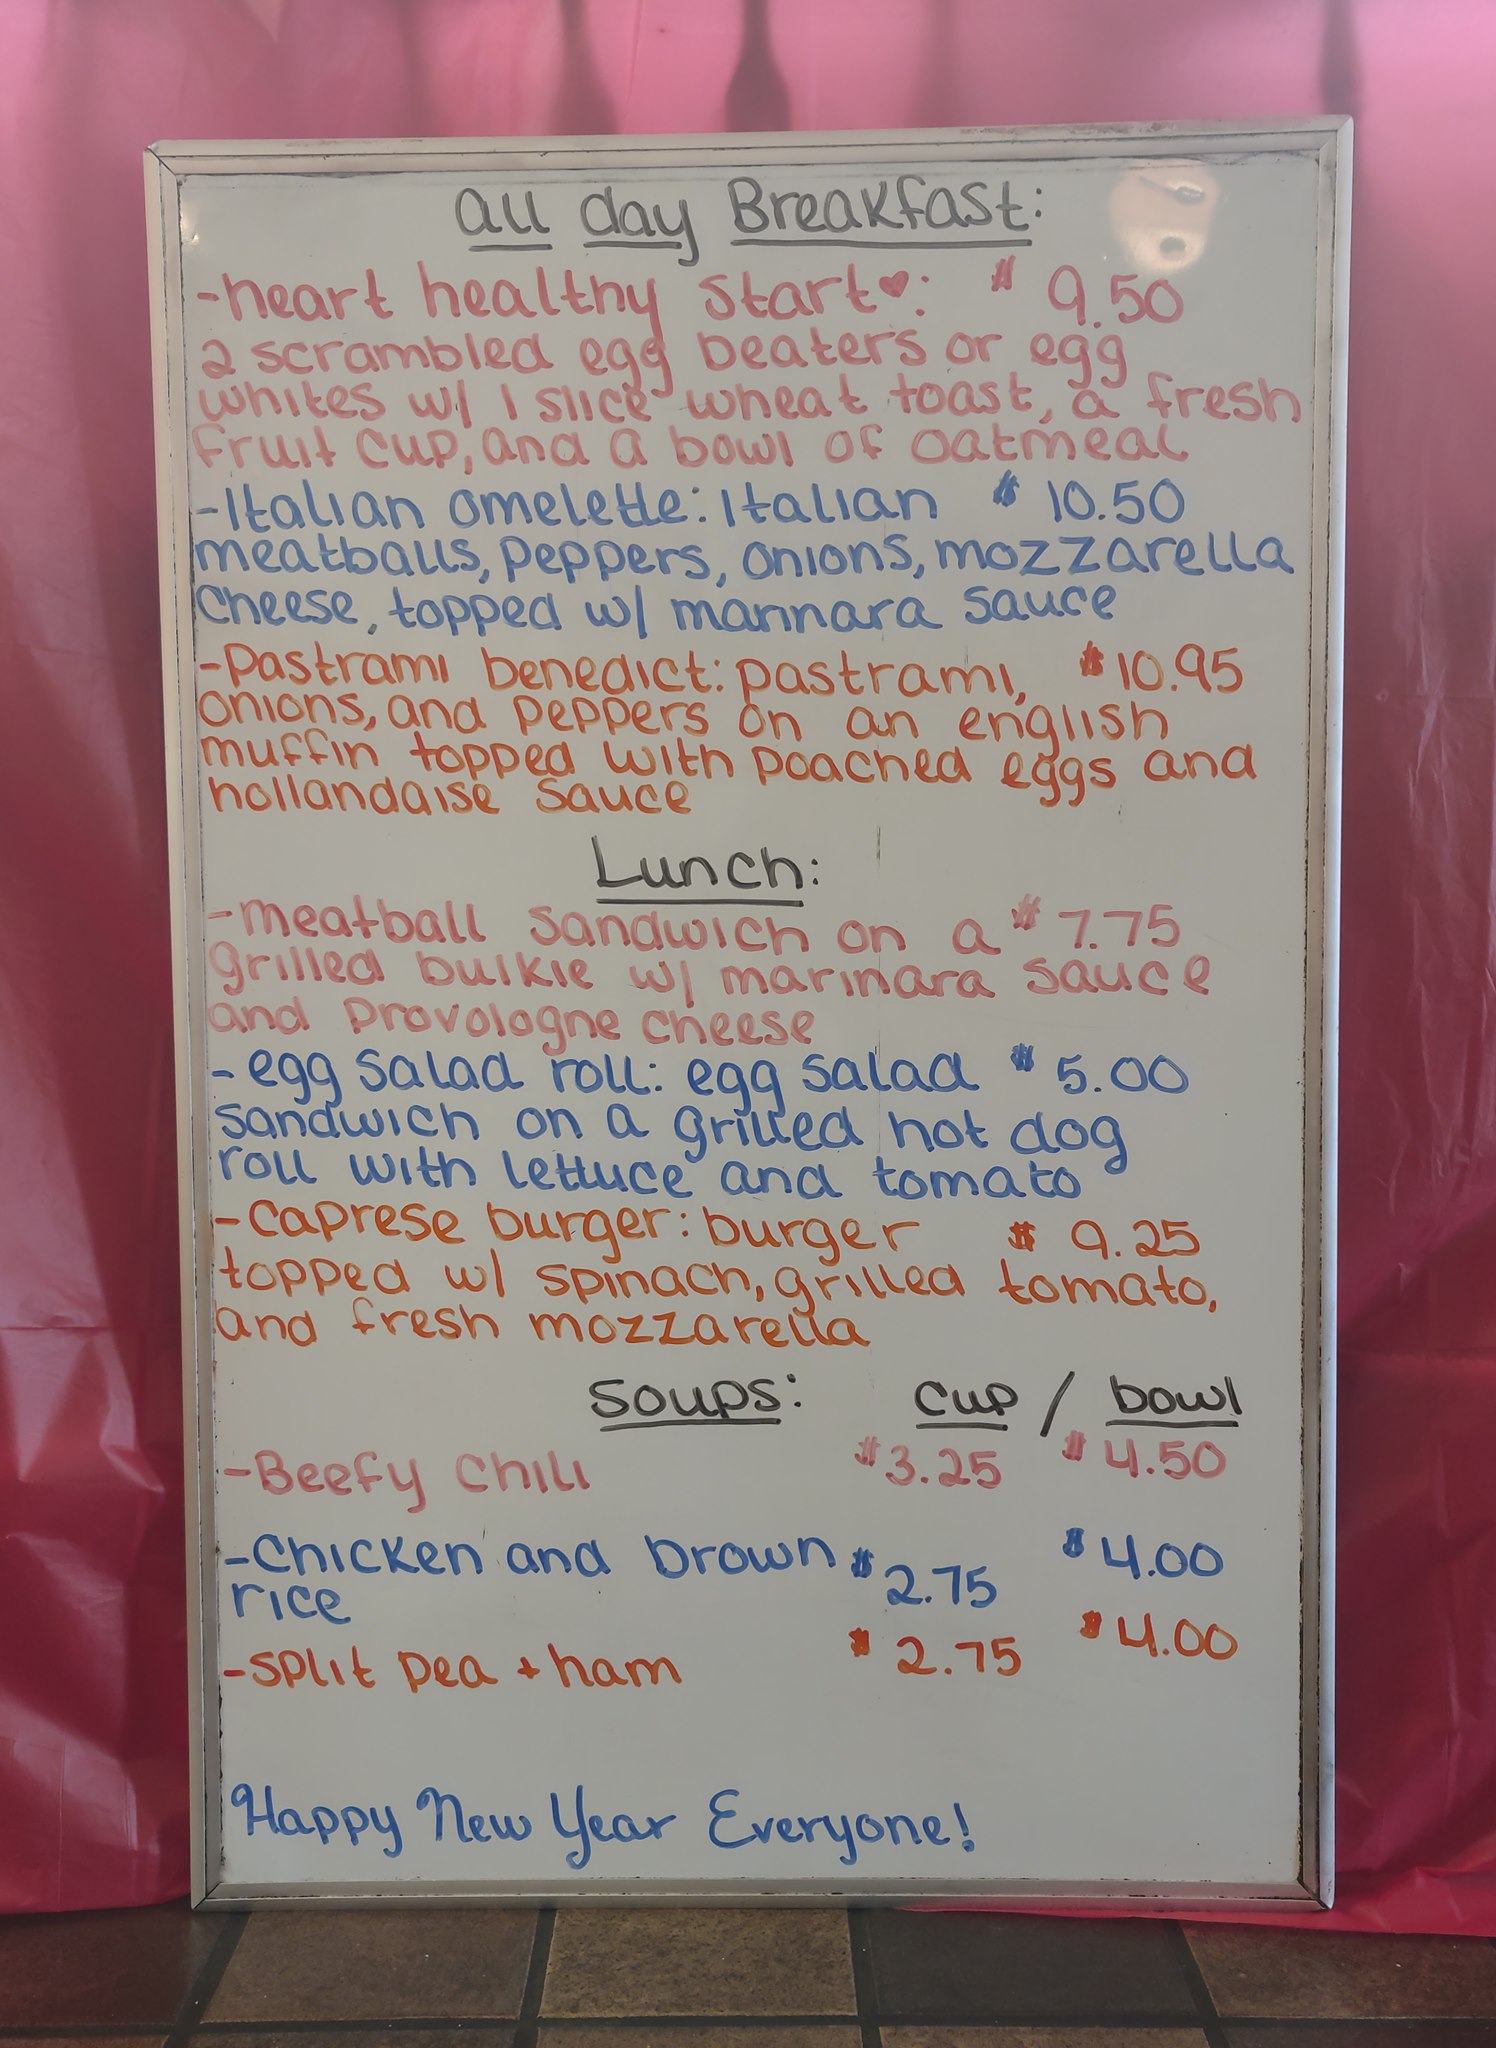 all day Breakfast:
-heart healthy start♥: $ 9.50
2 scrambled egg beaters or egg
whites w/ 1 slice wheat toast, a fresh
fruit cup, and a bowl of oatmeal
-Italian omelette: Italian $ 10.50
meatballs, peppers, onions, mozzarella
cheese, topped w/ marinara sauce
-Pastrami benedict: pastrami, $10.95
onions, and peppers on an english
muffin topped with poached eggs and
hollandaise sauce
Lunch:
-meatball sandwich on a $ 7.75
grilled bulkie w/ marinara sauce
and provologne cheese
- egg salad roll: egg salad $ 5.00
sandwich on a grilled hot dog
roll with lettuce and tomato
-caprese burger: burger $ 9.25
topped w/ spinach, grilled tomato,
and fresh mozzarella
soups: cup / bowl
-Beefy chili $3.25 $4.50
-chicken and brown $2.75 $4.00
rice
-split pea + ham $2.75 $4.00
Happy New Year Everyone!